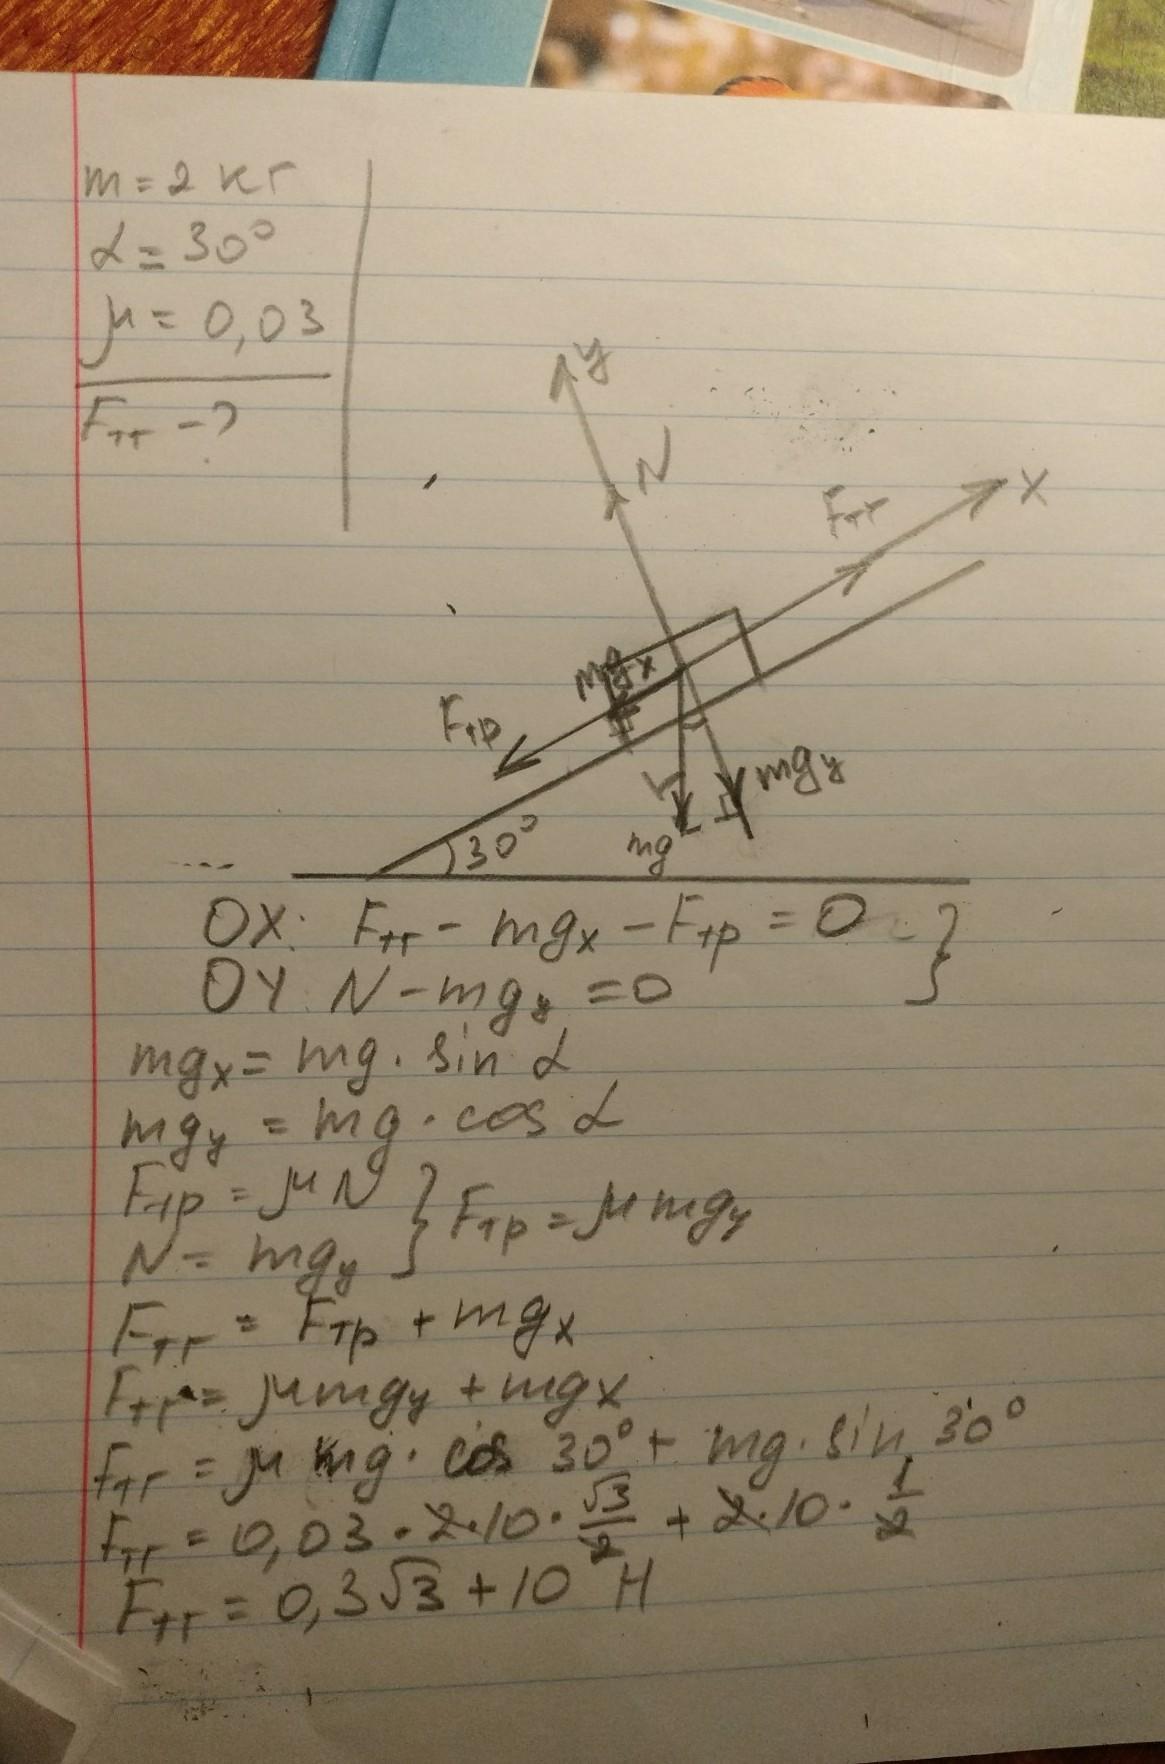 m = 2 кг
α = 30°
μ = 0,03
Fтг - ?
y
N
Fтг
X
mgx
Fтр
mgy
30°
mg
OX: Fтг - mgx - Fтр = 0
OY: N - mgy = 0
mgx = mg · sin α
mgy = mg · cos α
Fтр = μN
N = mgy
Fтр = μmgy
Fтг = Fтр + mgx
Fтг = μmgy + mgx
Fтг = μ mg · cos 30° + mg · sin 30°
Fтг = 0,03 · 2 · 10 · √3/2 + 2 · 10 · 1/2
Fтг = 0,3√3 + 10 Н